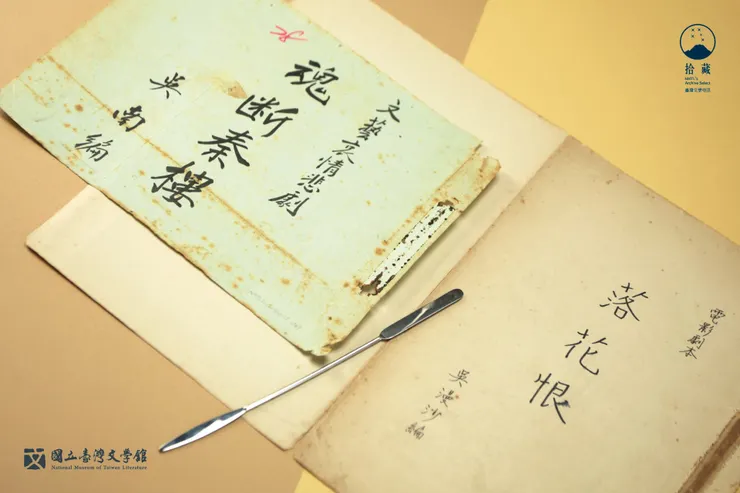 文藝哀情悲劇
魂断秦樓
吳南編
電影劇本
落花恨
吳漫沙編
拾藏
Archive Select
臺灣文學物語
國立臺灣文學館
National Museum of Taiwan Literature